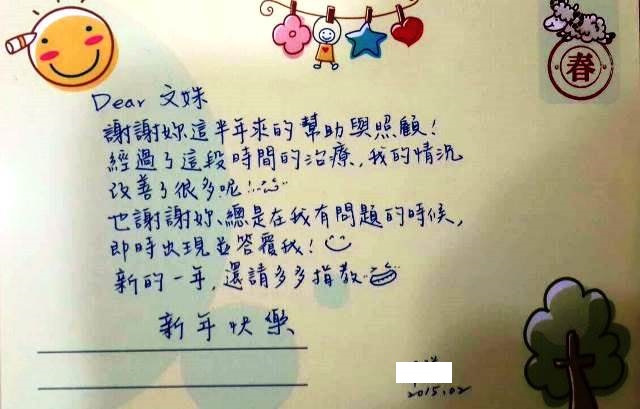 春
Dear 文姝
謝謝妳這半年來的幫助與照顧!
經過了這段時間的治療,我的情況
改善了很多呢!
也謝謝妳、總是在我有問題的時候,
即時出現並答覆我!
新的一年,還請多多指教
新年快樂
2015.02